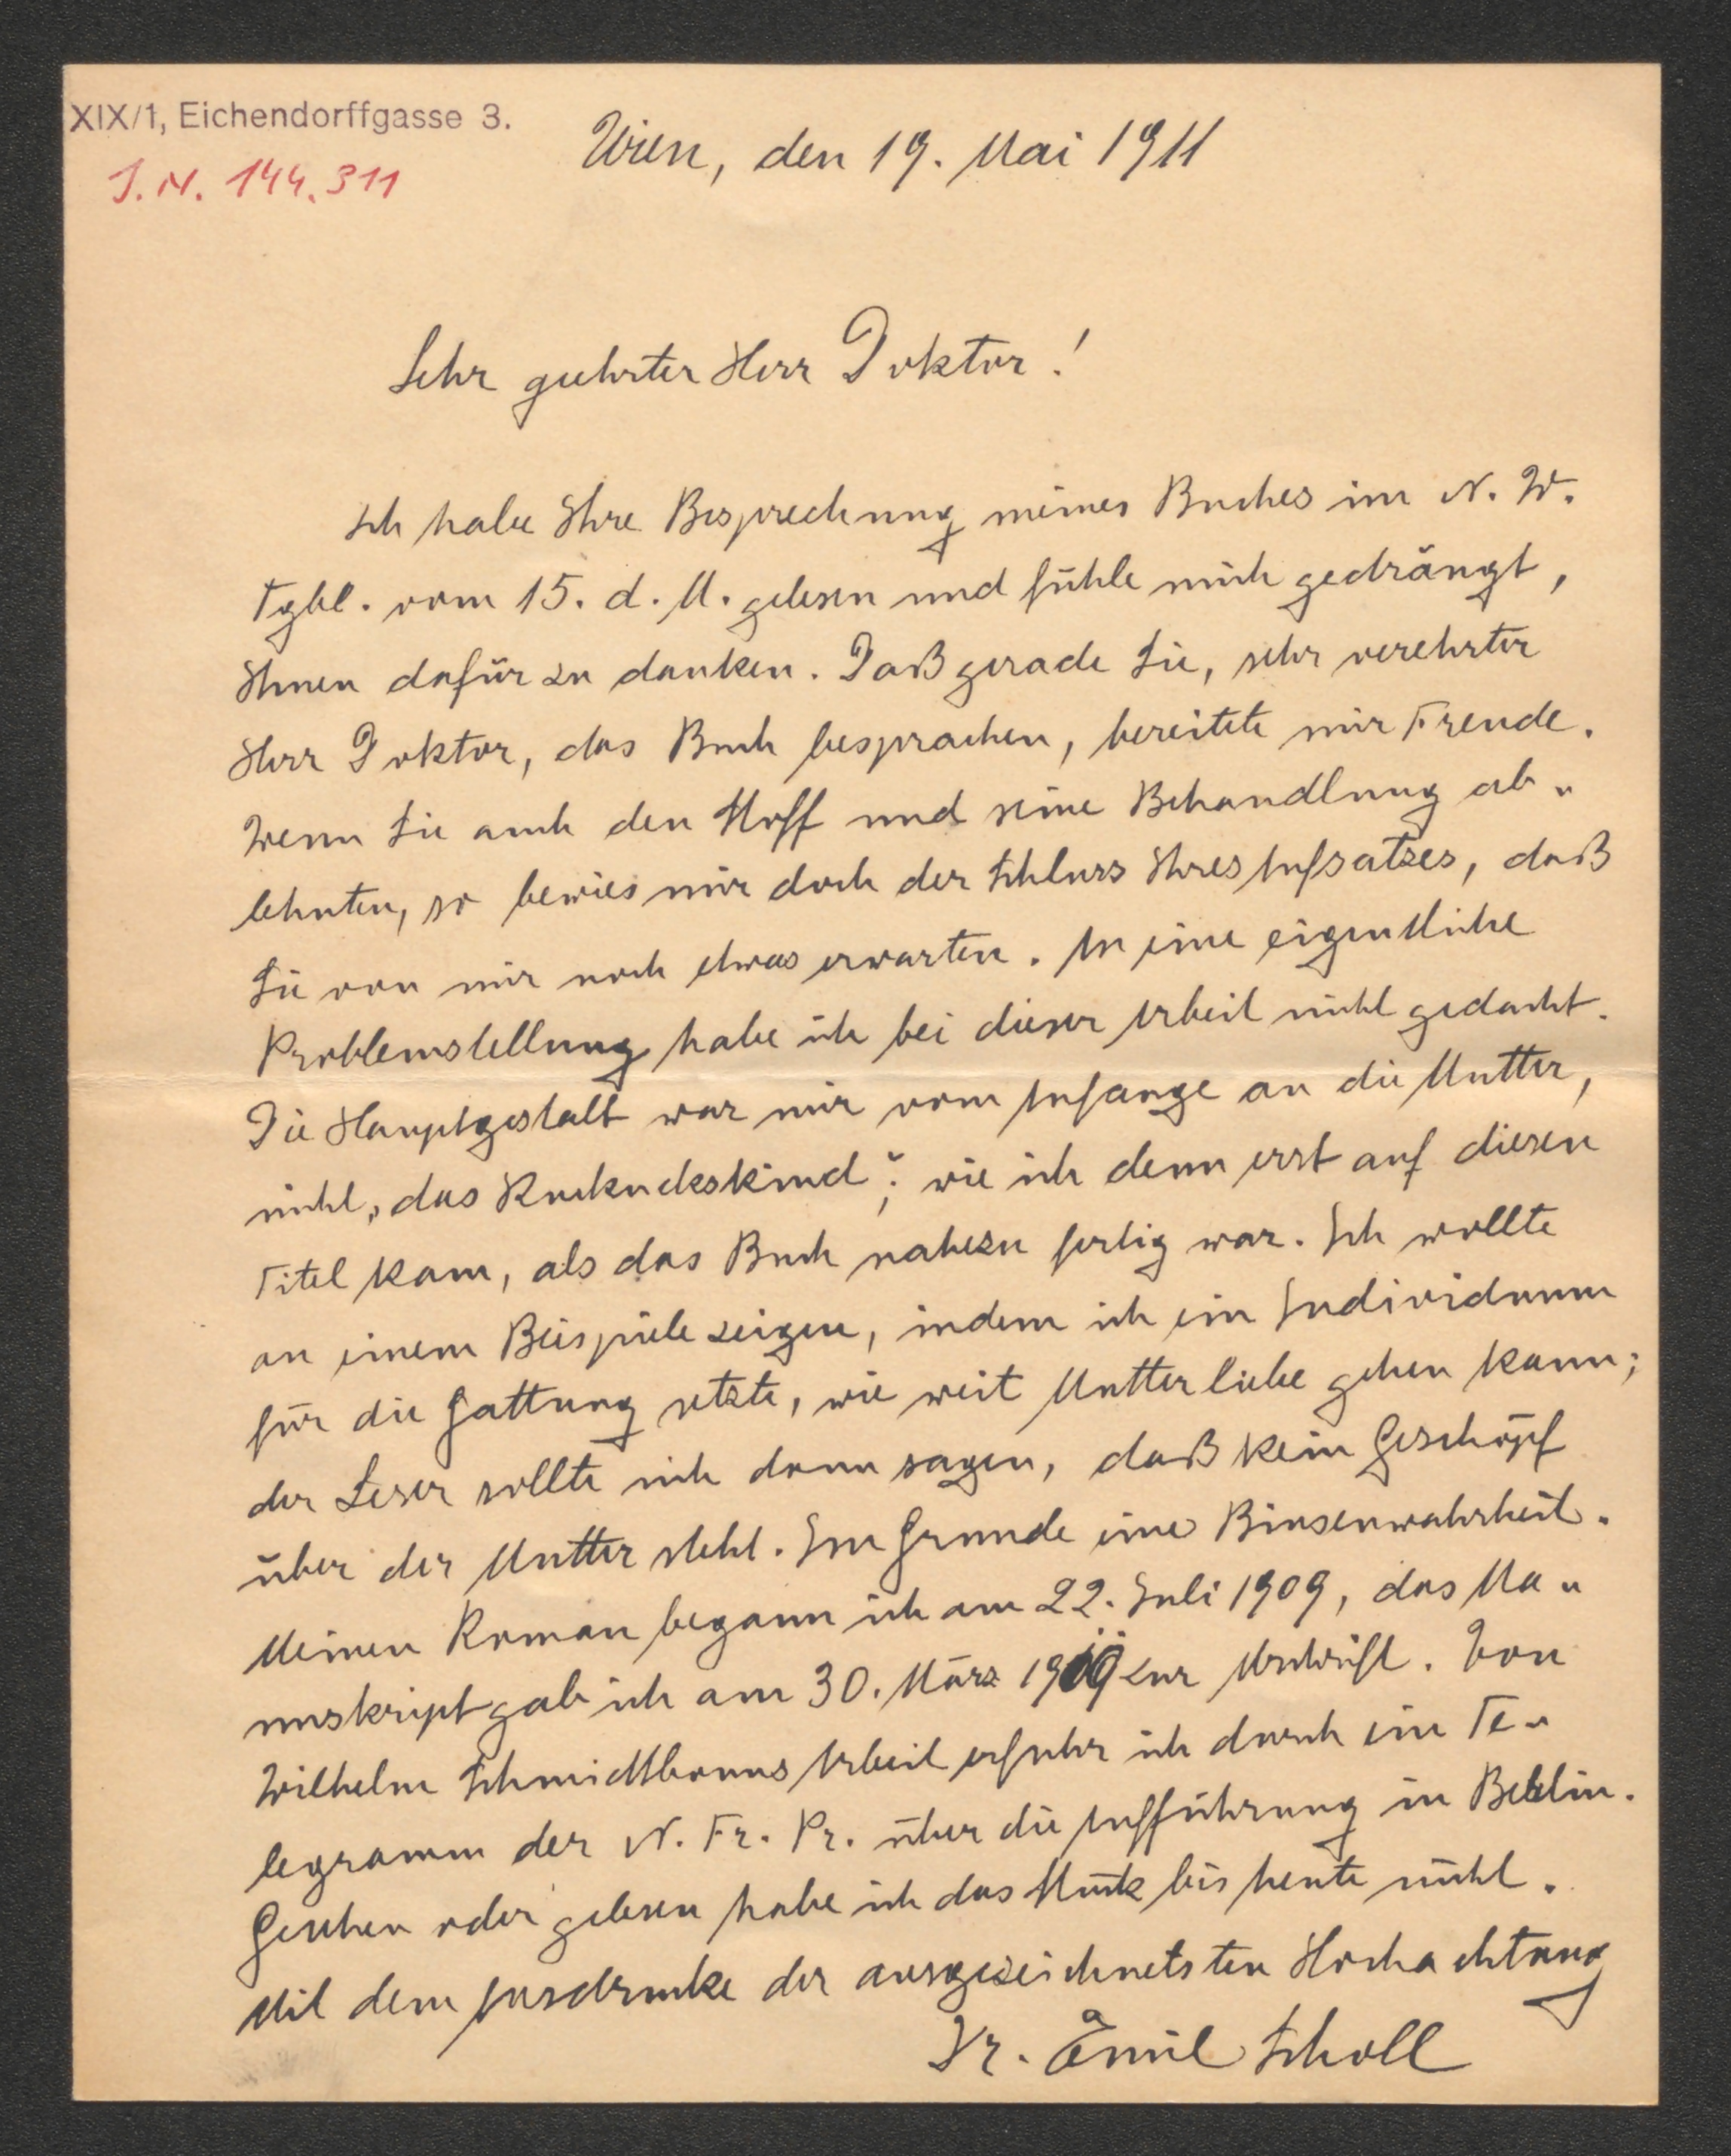 XIX/1, Eichendorffgasse 3.
Wien, den 19. Mai 1911
I.N. 144.311
Sehr geehrter Herr Doktor!
Ich habe Ihre Besprechung meines Buches im N. W.
Tgbl. vom 15. d. M. gelesen und fühle mich gedrängt,
Ihnen dafür zu danken. Daß gerade Sie, sehr verehrter
Herr Doktor, das Buch besprachen, bereitete mir Freude.
Wenn Sie auch den Stoff und seine Behandlung ab-
lehnten, so bewies mir doch der Schluss Ihres Aufsatzes, daß
Sie von mir noch etwas erwarten. An eine eigentliche
Problemstellung habe ich bei dieser Arbeit nicht gedacht.
Die Hauptgestalt war mir vom Anfange an die Mutter,
nicht „das Kuckuckskind“; wie ich denn erst auf diesen
Titel kam, als das Buch nahezu fertig war. Ich wollte
an einem Beispiele zeigen, indem ich ein Individuum
für die Gattung setzte, wie weit Mutterliebe gehen kann;
der Leser sollte sich dann sagen, daß kein Geschöpf
über der Mutter steht. Im Grunde eine Binsenwahrheit.
Meinen Roman begann ich am 22. Juli 1909, das Ma-
nuskript gab ich am 30. März 1910 zur Abschrift. Von
Wilhelm Schmidtbonns Arbeit erfuhr ich durch ein Te-
legramm der N. Fr. Pr. über die Aufführung in Berlin.
Gesehen oder gelesen habe ich das Stück bis heute nicht.
Mit dem Ausdrucke der ausgezeichnetsten Hochachtung
Dr. Emil Scholl